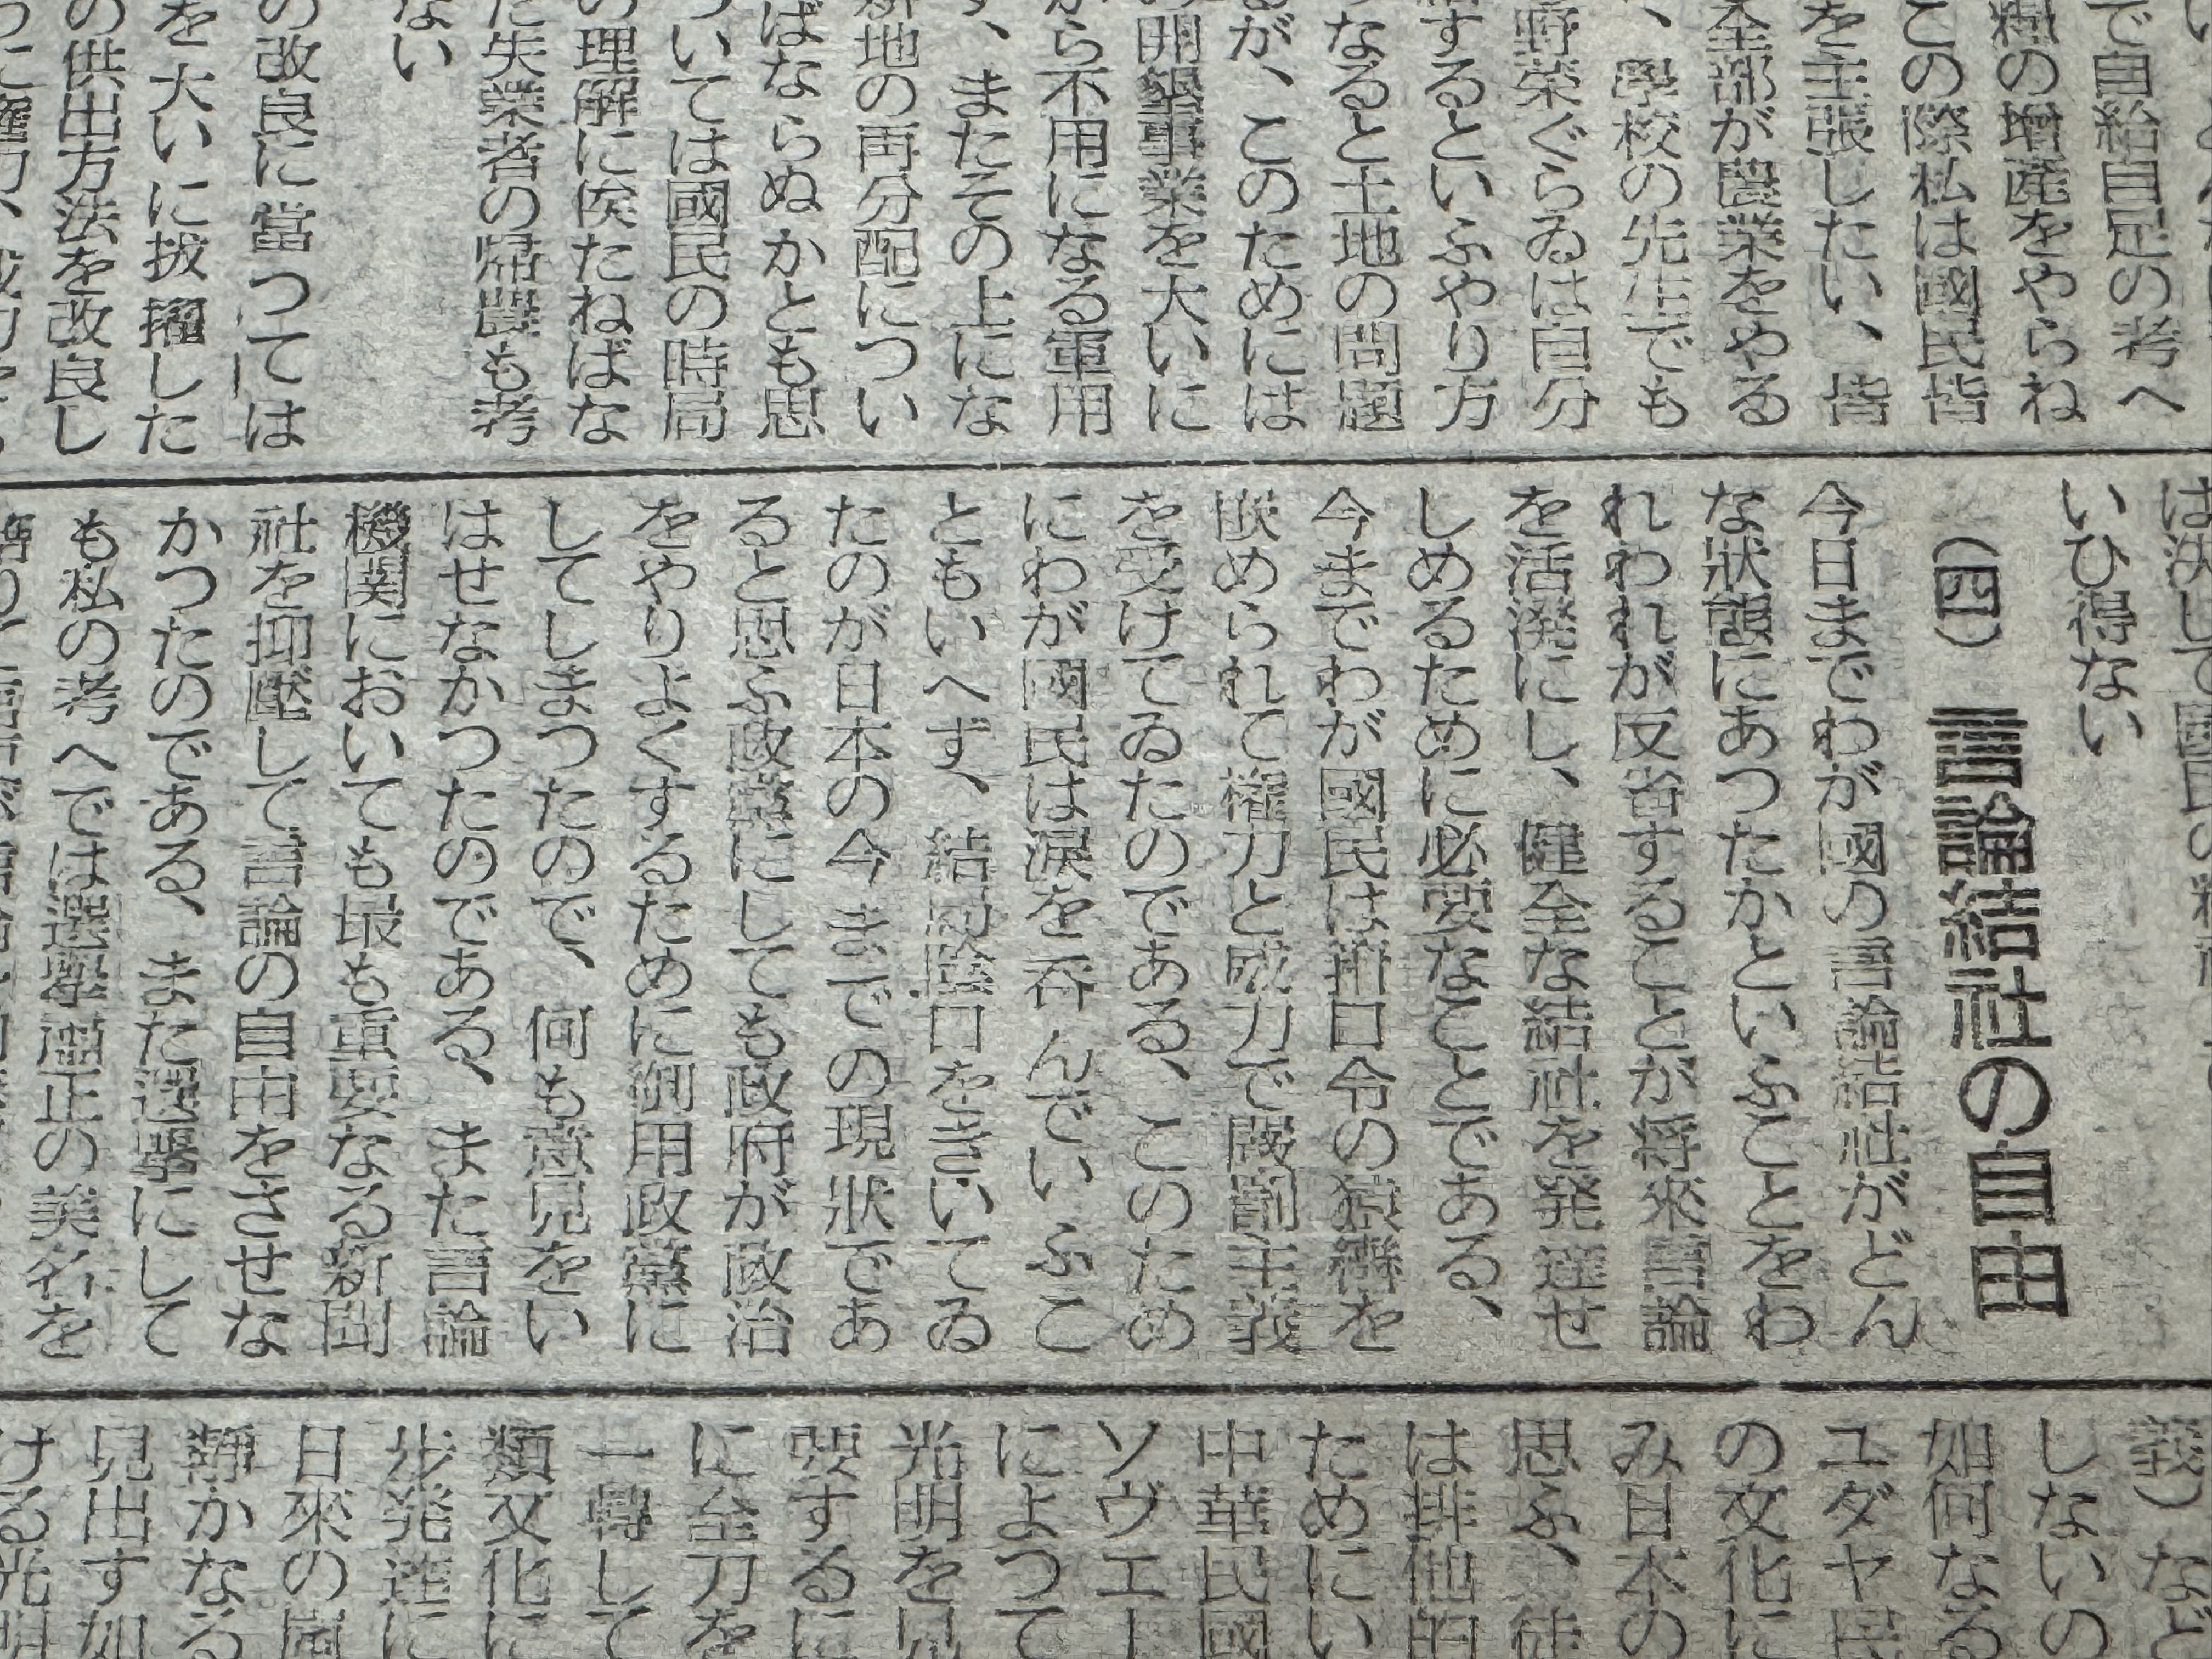 で自給自足の考へ
糧の増産をやらね
この際私は國民皆
を主張したい、皆
全部が農業をやる
、學校の先生でも
野菜ぐらゐは自分
するといふやり方
なると土地の問題
が、このためには
の開墾事業を大いに
から不用になる軍用
、またその上にな
地の再分配につい
ばならぬかとも思
ついては國民の時局
の理解に俟たねばな
た失業者の帰農も考
ない
の改良に當つては
を大いに拔擢した
の供出方法を改良し
いひ得ない
(四) 言論結社の自由
今日までわが國の言論結社がどん
な狀態にあつたかといふことをわ
れわれが反省することが將來言論
を活潑にし、健全な結社を発達せ
しめるために必要なことである、
今までわが國民は箝口令の猿轡を
嵌められて權力と威力で嚴罰主義
を受けてゐたのである、このため
にわが國民は淚を呑んでいふこ
ともいへず、結局陰口をきいてゐ
たのが日本の今までの現狀であ
ると思ふ政黨にしても政府が政治
をやりよくするために御用政黨に
してしまつたので、何も意見をい
はせなかつたのである、また言論
機関においても最も重要なる新聞
社を抑壓して言論の自由をさせな
かつたのである、また選擧にして
も私の考へでは選擧肅正の美名を
義)など
しないの
如何なる
ユダヤ民
の文化に
み日本の
思ふ、徒
は排他的
ためにい
中華民國
ソヴエー
によつて
光明を見
要するに
に全力を
一轉して
類文化に
歩発達に
日來の國
靜かなる
見出す如
ける光明